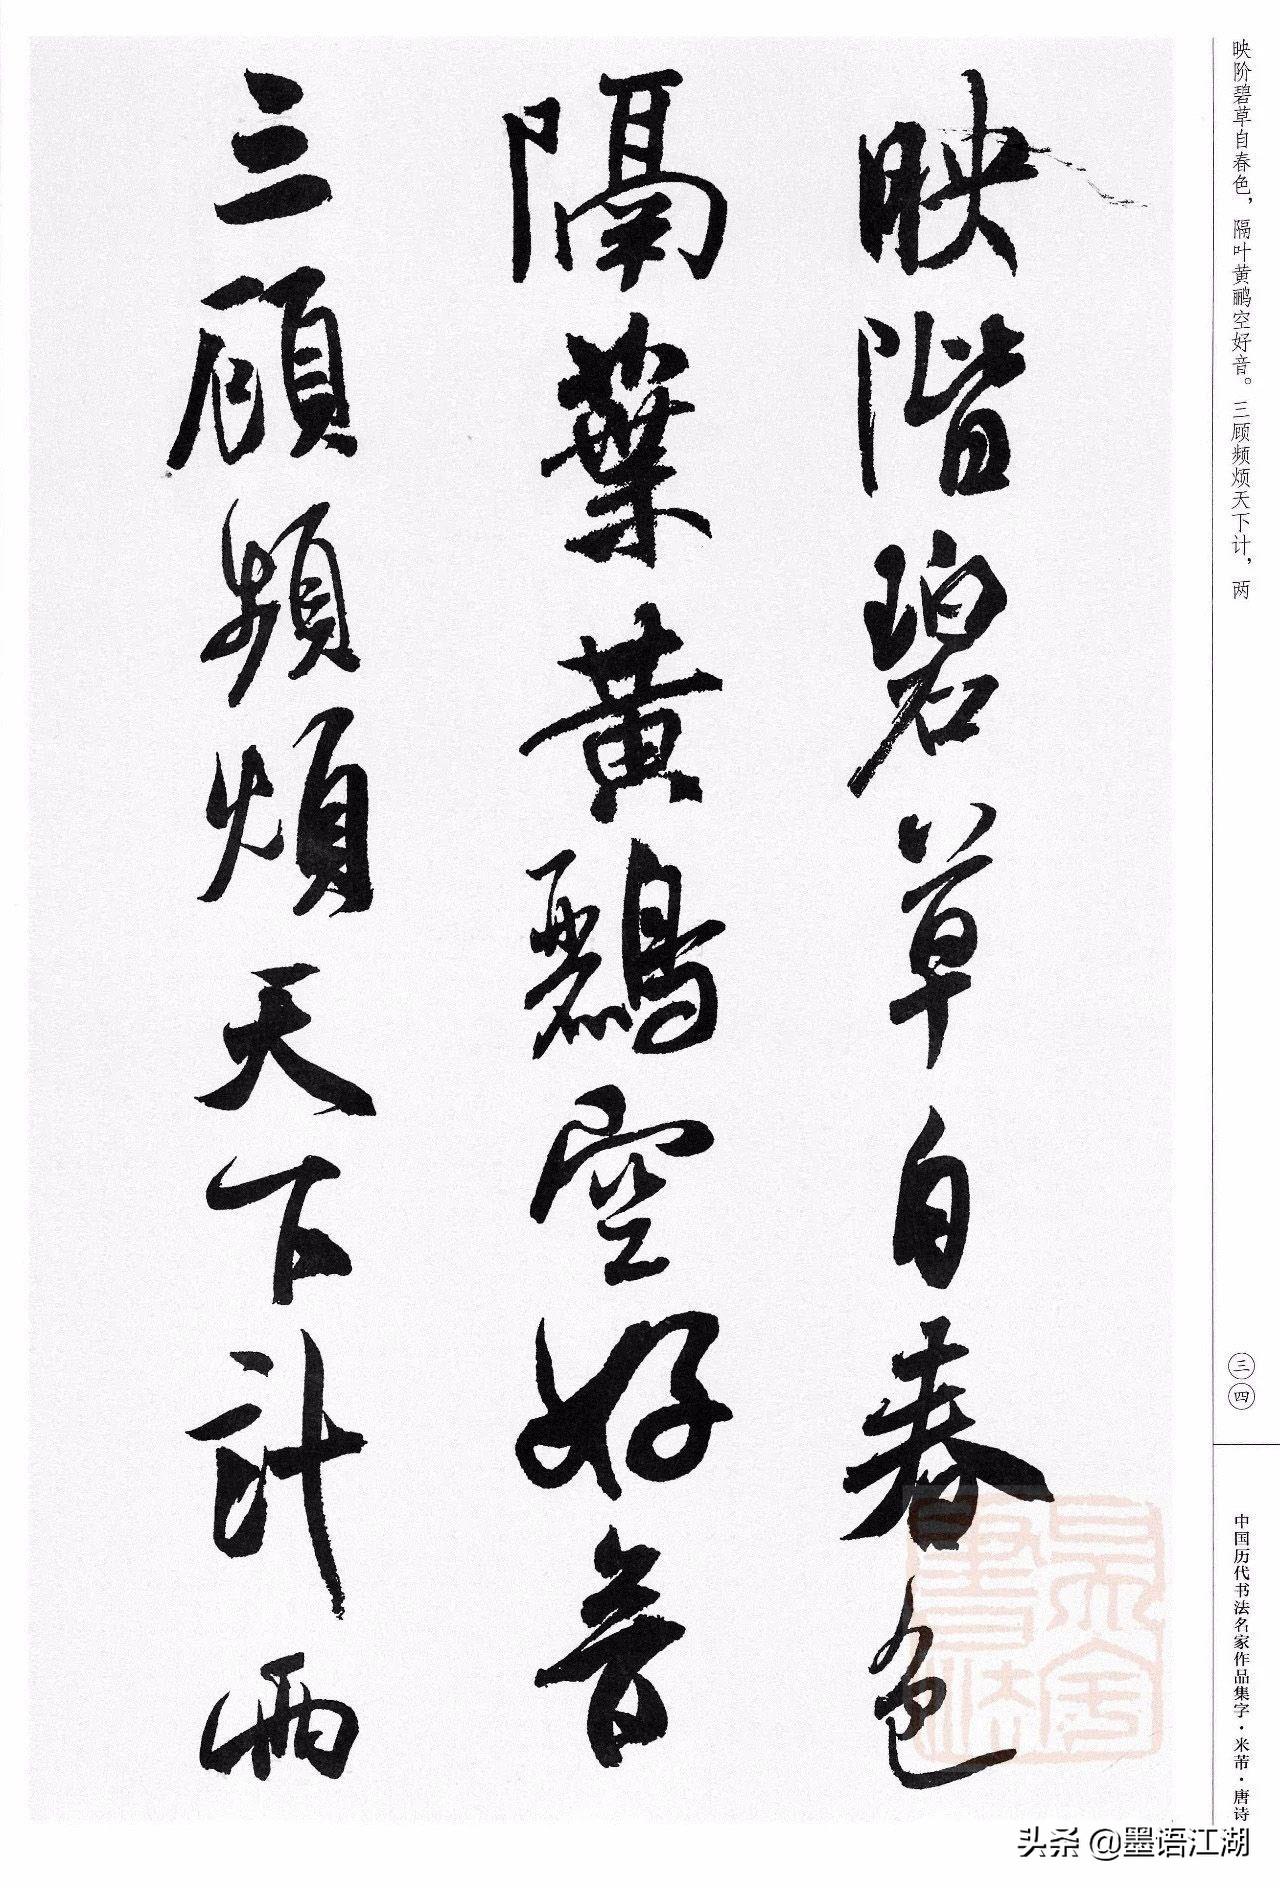 映階碧草自春色
隔葉黃鸝空好音
三顧頻煩天下計兩
映阶碧草自春色，隔叶黄鹂空好音。三顾频烦天下计，两
三四
中国历代书法名家作品集字·米芾·唐诗
头条 @墨语江湖